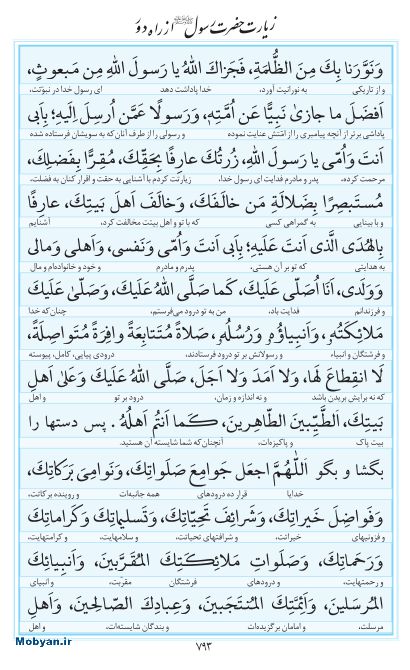 زیارت حضرت رسول ﷺ از راه دور
وَنَوَّرَنا بِكَ مِنَ الظُّلمَةِ، فَجَزاكَ اللهُ يا رَسولَ اللهِ مِن مَبعوثٍ،
و از تاریکی به نورانیت آورد، خدا پاداشت دهد ای رسول خدا در نبوّتت،
اَفضَلَ ما جازىٰ نَبِيًّا عَن اُمَّتِهِ، وَرَسولًا عَمَّن اُرسِلَ اِلَيهِ؛ بِاَبى
پاداشی برتر از آنچه پیامبری را از امّتش عنایت نموده و رسولی را از طرف آنان که به سویشان فرستاده شده
اَنتَ وَاُمّى يا رَسولَ اللهِ، زُرتُكَ عارِفًا بِحَقِّكَ، مُقِرًّا بِفَضلِكَ،
مرحمت کرده، پدر و مادرم فدایت ای رسول خدا، زیارتت کردم با آشنایی به حقت و اقرار کنان به فضلت،
مُستَبصِرًا بِضَلالَةِ مَن خالَفَكَ، وَخالَفَ اَهلَ بَيتِكَ، عارِفًا
و با بینایی به گمراهی کسی که با تو و اهل بیتت مخالفت کرد، آشنایم
بِالهُدَى الَّذى اَنتَ عَلَيهِ؛ بِاَبى اَنتَ وَاُمّى وَنَفسى، وَاَهلى وَمالى
به هدایتی که تو بر آن هستی. پدرم و مادرم و خود و خانواده‌ام و مال
وَوَلَدى، اَنَا اُصَلّى عَلَيكَ، كَما صَلَّى اللهُ عَلَيكَ، وَصَلّىٰ عَلَيكَ
و فرزندانم فدایت باد، من به تو درود می‌فرستم، چنان‌که خدا
مَلائِكَتُهُ، وَاَنبِياؤُهُ وَرُسُلُهُ، صَلاةً مُتَتابِعَةً وافِرَةً مُتَواصِلَةً،
و فرشتگان و انبیاء و رسولانش بر تو درود فرستادند، درودی پیاپی، کامل، پیوسته
لَا انقِطاعَ لَها، وَلا اَمَدَ وَلا اَجَلَ، صَلَّى اللهُ عَلَيكَ وَعَلىٰ اَهلِ
که نه برایش بریدن باشد و نه اندازه و زمان، درود بر تو و اهل
بَيتِكَ، الطَّيِّبينَ الطّاهِرينَ، كَما اَنتُم اَهلُهُ. پس دستها را
بیت پاک و پاکیزه‌ات، آنچنان که شما شایسته آن هستید.
بگشا و بگو اَللّٰهُمَّ اجعَل جَوامِعَ صَلَواتِكَ، وَنَوامِىَ بَرَكاتِكَ،
خدایا قرار ده درودهای همه جانبه‌ات و روینده برکاتت،
وَفَواضِلَ خَيراتِكَ، وَشَرائِفَ تَحِيّاتِكَ، وَتَسليماتِكَ وَكَراماتِكَ
و فزونیهای خیراتت، و شرافتهای تحیاتت، و سلامهایت، و کرامتهایت،
وَرَحَماتِكَ، وَصَلَواتِ مَلائِكَتِكَ المُقَرَّبينَ، وَاَنبِيائِكَ
و رحمتهایت، و درودهای فرشتگان مقرّبت، و انبیای
المُرسَلينَ، وَاَئِمَّتِكَ المُنتَجَبينَ، وَعِبادِكَ الصّالِحينَ، وَاَهلِ
مرسلت، و امامان برگزیده‌ات و بندگان شایسته‌ات، و اهل
۷۹۳
Mobyan.ir